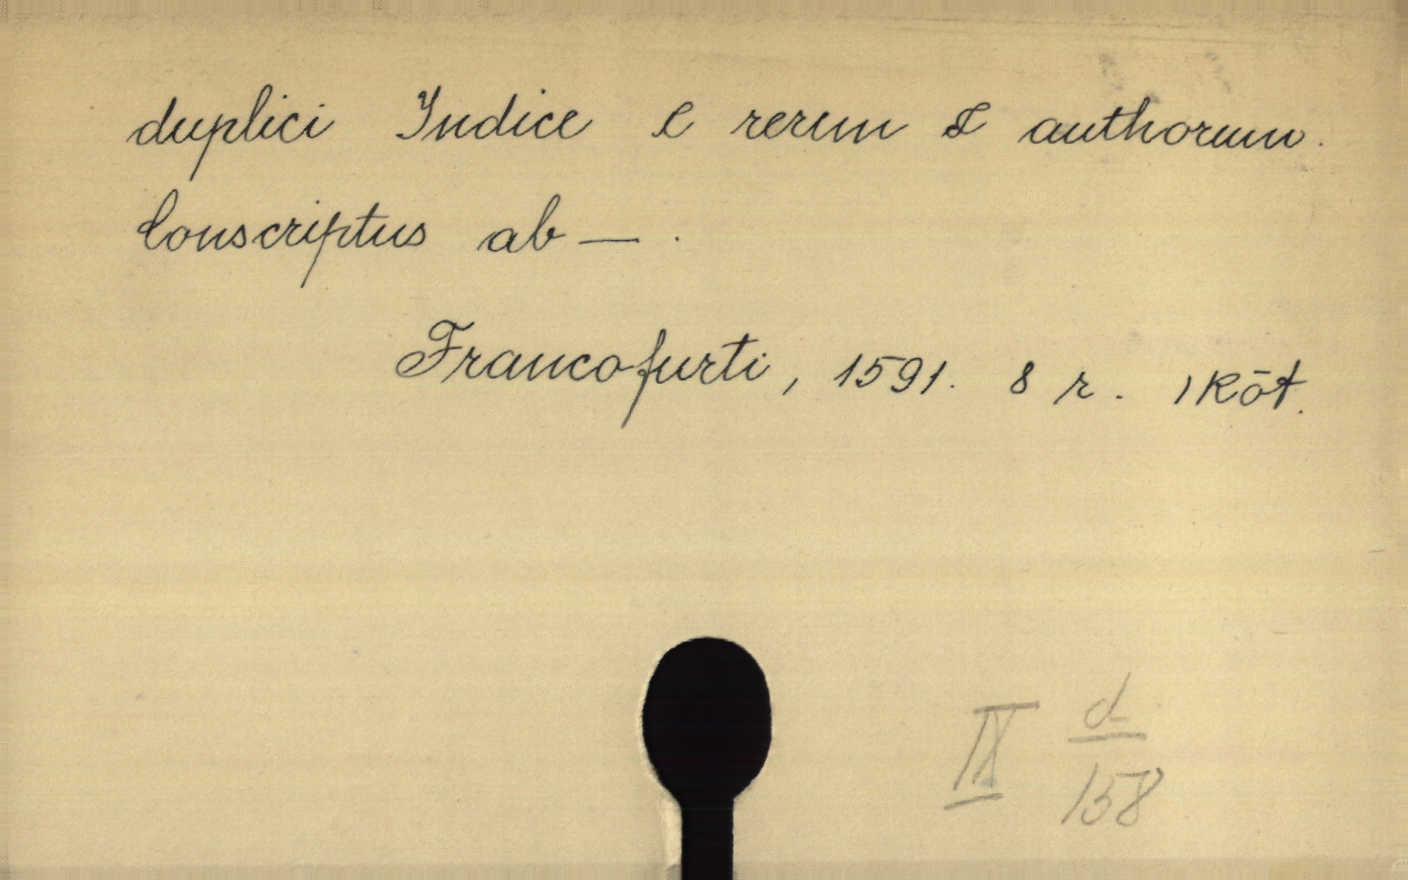 duplici Indice & rerum & authorum.
Conscriptus ab — .
Francofurti, 1591. 8 r. 1 Köt.
IX d
158